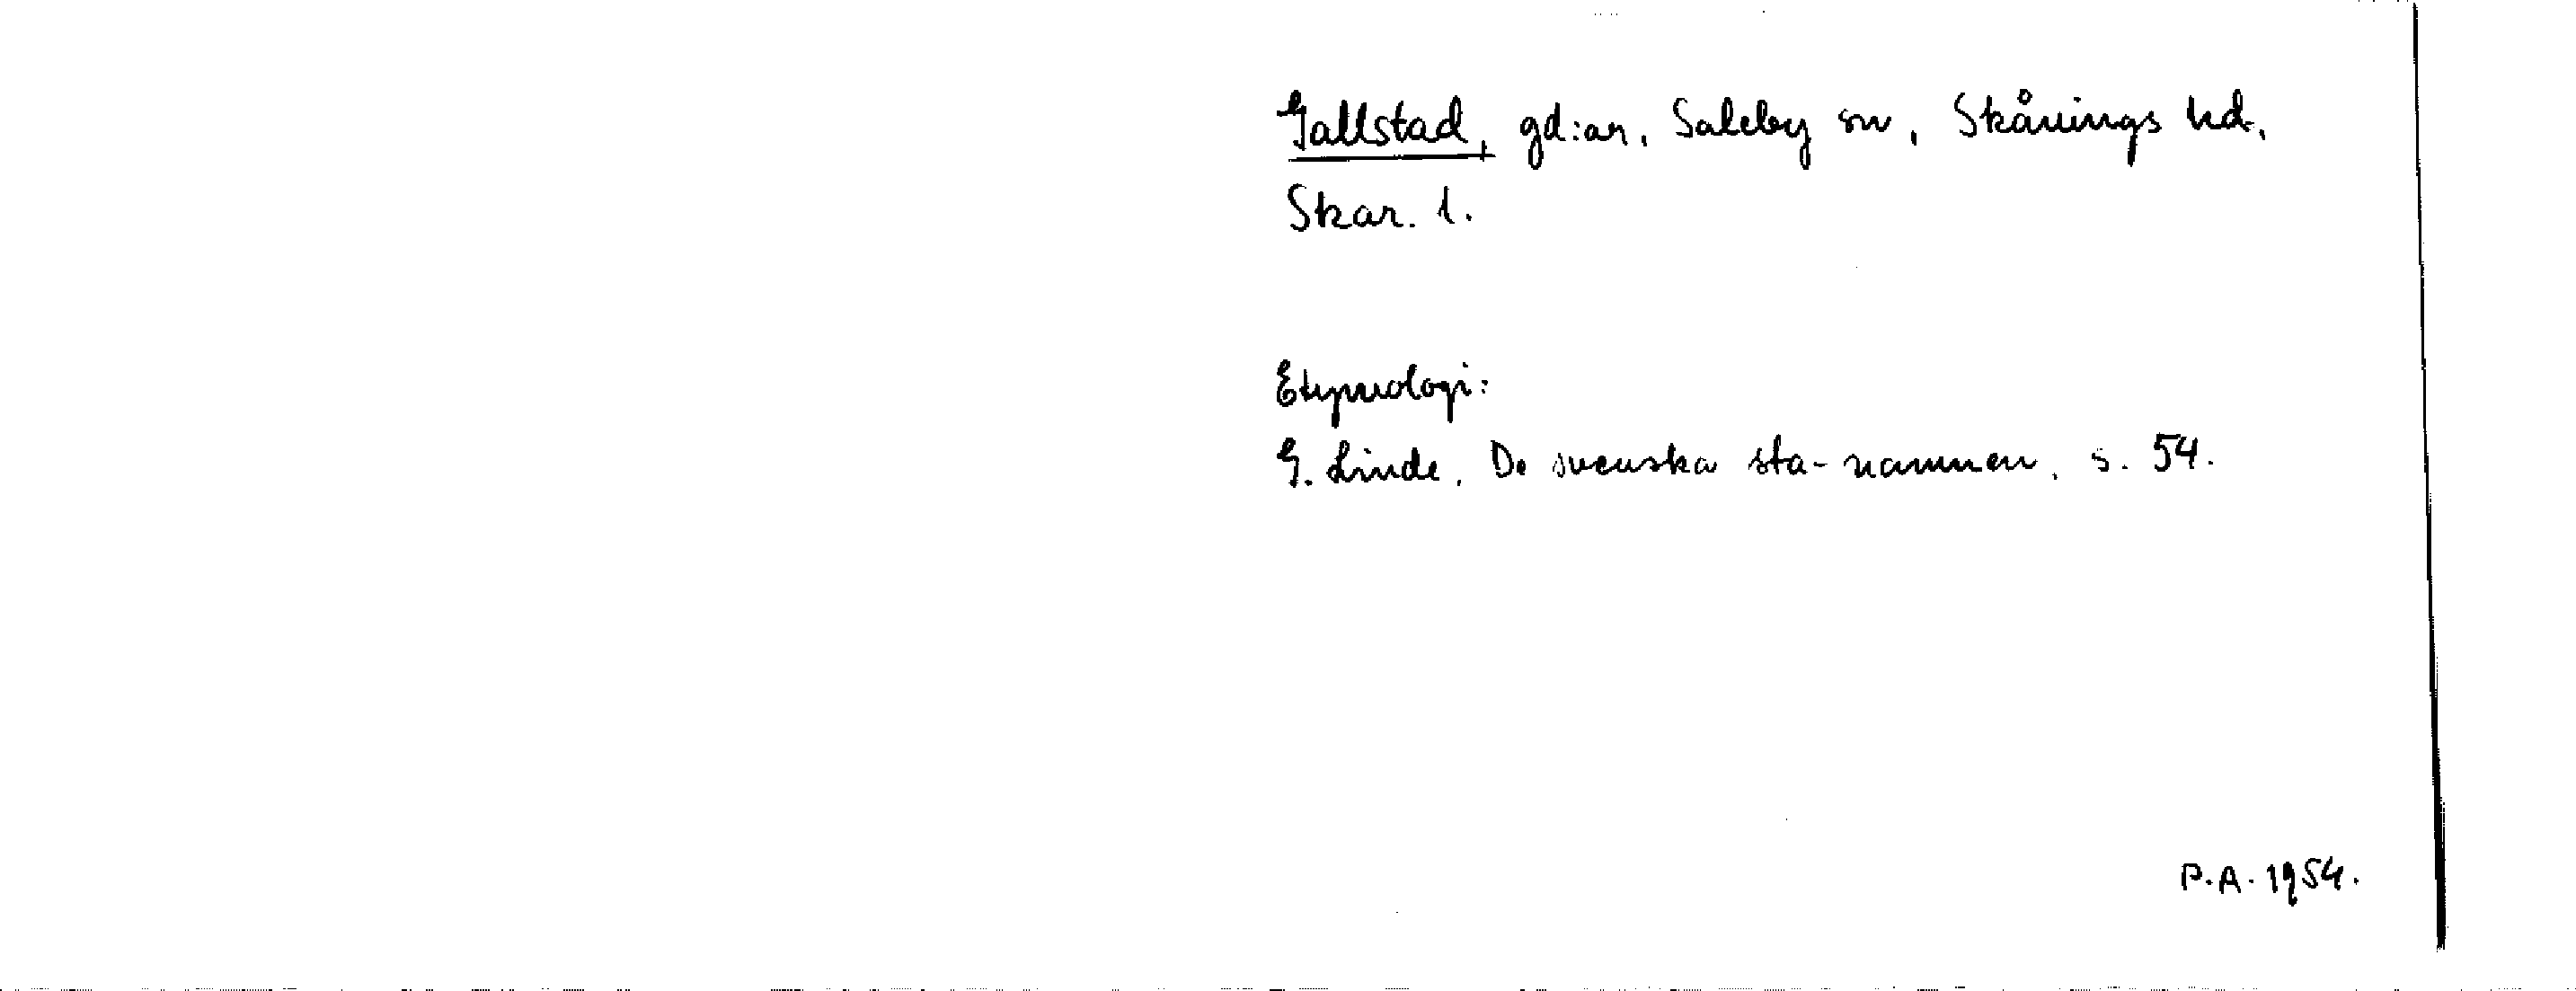 Gallstad, gd:ar, Saleby sn, Skånings hd,
Skar. l.
Etymologi:
G. Linde, De svenska sta-namnen, s. 54.
P.A. 1954.